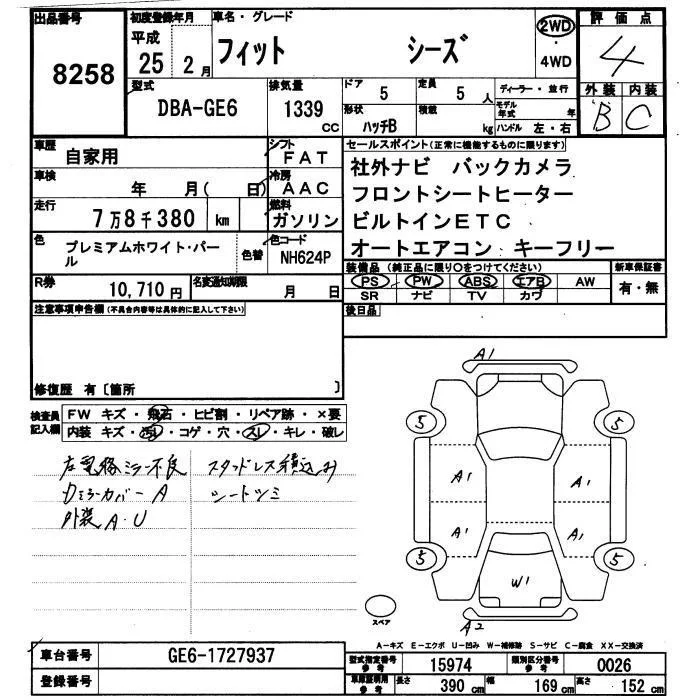 出品番号 初度登録年月 車名・グレード 2WD 評価点
8258 平成 25 2月 フィット シーズ ・4WD 4
型式 排気量 ドア 定員 ディーラー・並行 外装 内装
DBA-GE6 1339 CC 5 5 人 モデル年式 年 B C
形状 積載
ハッチB kg ハンドル 左・右
車歴 自家用 シフト FAT セールスポイント(正常に機能するものに限ります)
車検 年 月( 日) 冷房 AAC 社外ナビ バックカメラ
フロントシートヒーター
走行 7万8千380 km 燃料 ガソリン ビルトインETC
色 プレミアムホワイト・パール 色替 色コード NH624P オートエアコン キーフリー
装備品(純正品に限り○をつけてください) 新車保証書
R券 10,710円 名変通知期限 月 日 PS PW ABS エアB AW 有・無
SR ナビ TV カワ
注意事項申告欄(不具合内容等は具体的に記入して下さい) 後日品
修復歴 有〔箇所 〕
検査員記入欄 FW キズ・飛石・ヒビ割・リペア跡・×要
内装 キズ・汚れ・コゲ・穴・スレ・キレ・破レ
左電格ミラー不良 スタッドレス積込み
Dミラーカバー A シートシミ
外装 A・U
A1
5 5
A1 A1
A1 A1
5 5
W1
スペア A2
A-キズ E-エクボ U-凹み W-補修跡 S-サビ C-腐食 XX-交換済
車台番号 GE6-1727937 型式指定番号 参考 15974 類別区分番号 参考 0026
登録番号 車庫証明用 参考 長さ 390 cm 幅 169 cm 高さ 152 cm